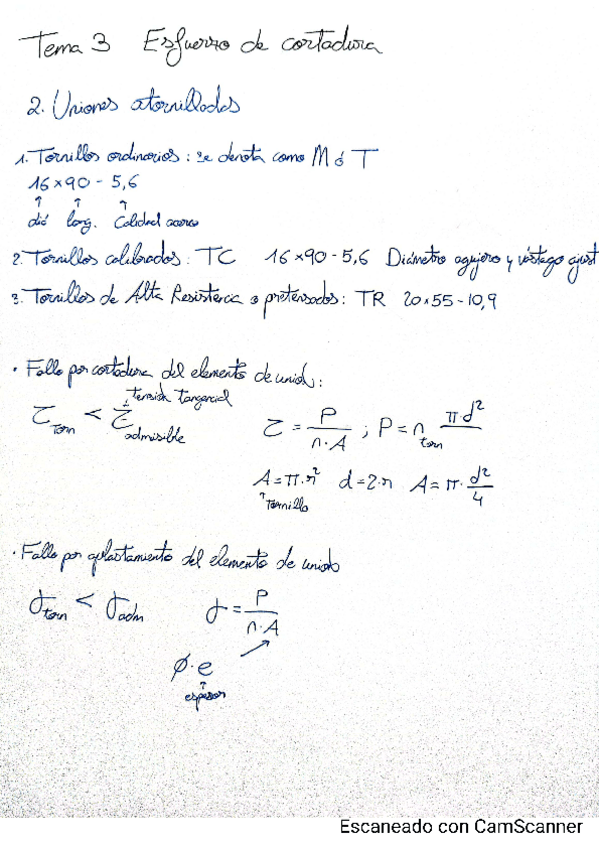 Tema 3 Esfuerzo de cortadura
2. Uniones atornilladas
1. Tornillos ordinarios: se denota como M ó T
16×90 - 5,6
↑ ↑ ↑
diá long. Calidad acero
2. Tornillos calibrados: TC 16×90 - 5,6 Diámetro agujero y vástago ajust
3. Tornillos de Alta Resistencia o pretensados: TR 20×55 - 10,9
· Fallo por cortadura del elemento de unión:
tensión tangencial
τ torn < τ admisible τ = P / n·A ; P = n torn π·d²
A = π·r² d = 2·r A = π·d²/4
↑ tornillo
· Fallo por aplastamiento del elemento de unión
σ torn < σ adm σ = P / n·A
ø·e
↑
espesor
Escaneado con CamScanner